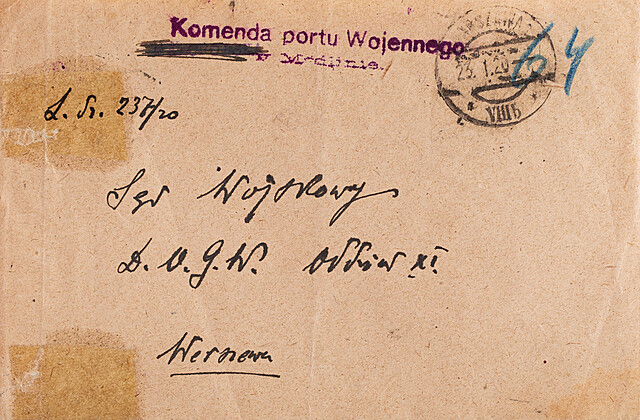 Komenda portu Wojennego
w Modlinie.
WARSZAWA
23.1.20
VIIIb
64
L. dz. 237/20
Sąd Wojskowy
D.O.G.W. Oddział XI.
Warszawa